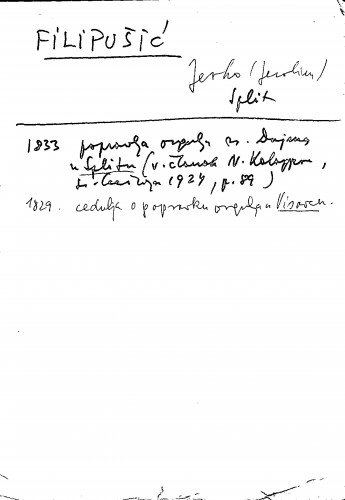 FILIPUŠIĆ
Jerko (Jerolim)
Split
1833 popravlja orgulje sv. Dujma
u Splitu (v. članak N. Kalogjera,
Sv. Cecilija 1924, p. 89)
1829. cedulja o popravku orgulja u Visovcu.